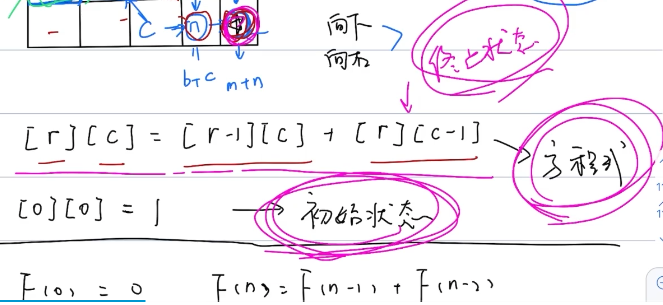 - - C → n →
b+c m+n
向下
向右
终止状态
[r][c] = [r-1][c] + [r][c-1] → 方程式
[0][0] = 1 → 初始状态
F(0) = 0 F(n) = F(n-1) + F(n-2)